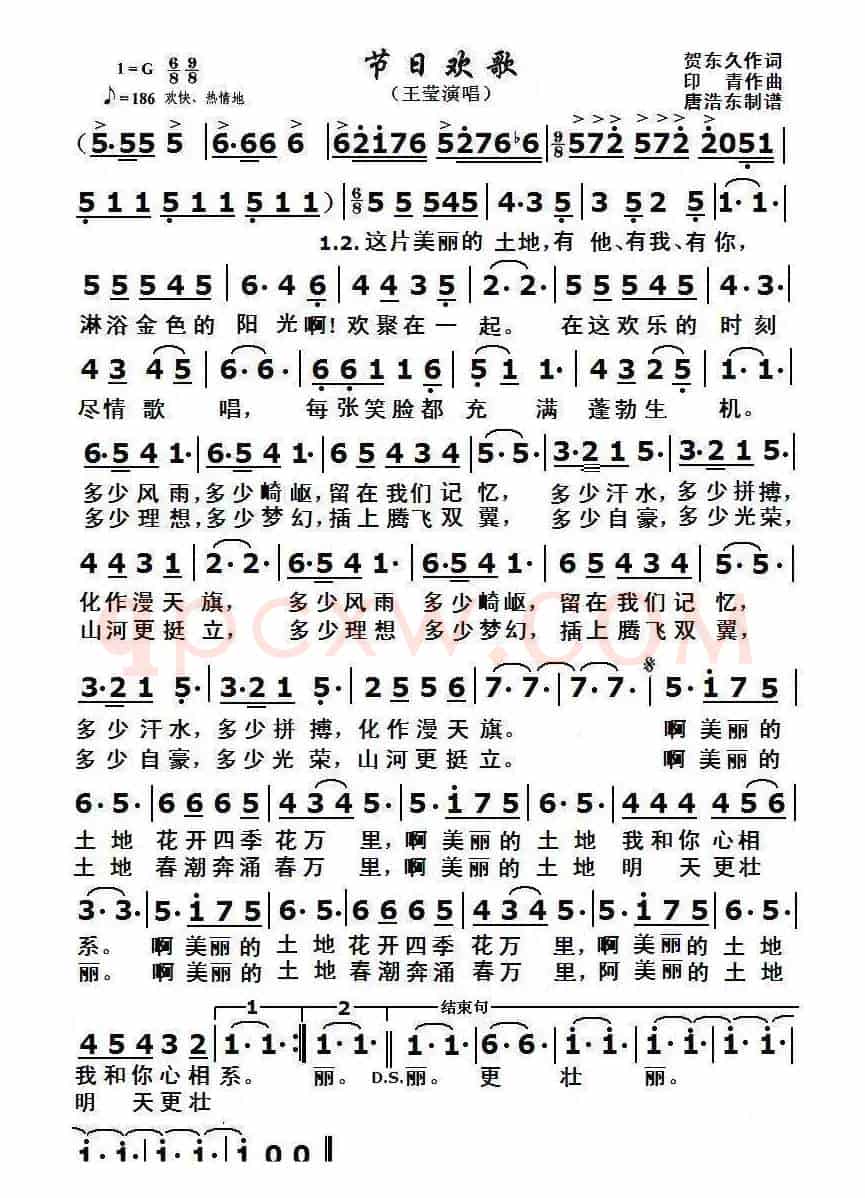 节日欢歌
1=G 6/8 9/8
贺东久作词
♪=186 欢快、热情地
（王莹演唱）
印 青作曲
唐浩东制谱
（5·55 5 | 6·66 6 | 62i76 5276♭6 | 9/8 572 572 2051 |
511 511 511）| 6/8 5 5 545 | 4·3 5 | 3 52 5 | 1· 1· |
1.2. 这片美丽的 土地,有 他、有我、有你，
5 5 5 4 5 | 6·4 6 | 4 4 3 5 | 2· 2· | 5 5 5 4 5 | 4· 3· |
淋浴金色的 阳光啊! 欢聚在一 起。 在这欢乐的 时刻
4 3 4 5 | 6· 6· | 6 6 1 1 6 | 5 1 1· | 4 3 2 5 | 1· 1· |
尽情歌 唱， 每张笑脸都 充 满 蓬勃生 机。
6·5 4 1· | 6·5 4 1· | 6 5 4 3 4 | 5· 5· | 3·2 1 5· | 3·2 1 5· |
多少风雨,多少崎岖,留在我们记忆， 多少汗水,多少拼搏,
多少理想,多少梦幻,插上腾飞双翼， 多少自豪,多少光荣,
4 4 3 1 | 2· 2· | 6·5 4 1· | 6·5 4 1· | 6 5 4 3 4 | 5· 5· |
化作漫天旗， 多少风雨 多少崎岖,留在我们记忆，
山河更挺立， 多少理想 多少梦幻,插上腾飞双翼，
qpcxw.COM
3·2 1 5· | 3·2 1 5· | 2 5 5 6 | 7· 7· | 7· 7· | 5·i 7 5 |
多少汗水,多少拼搏,化作漫天旗。 啊美丽的
多少自豪,多少光荣,山河更挺立。 啊美丽的
6· 5· | 6 6 6 5 | 4 3 4 5· | 5·i 7 5 | 6· 5· | 4 4 4 4 5 6 |
土地 花开四季花万 里,啊美丽的土地 我和你心相
土地 春潮奔涌春万 里,啊美丽的土地 明 天更壮
3· 3· | 5·i 7 5 | 6· 5· | 6 6 6 5 | 4 3 4 5· | 5·i 7 5 | 6· 5· |
系。 啊美丽的土地花开四季花万 里,啊美丽的土地
丽。 啊美丽的土地春潮奔涌春万 里,阿美丽的土地
1 2 结束句
4 5 4 3 2 | 1· 1· :‖ 1· 1· ‖ 1· 1· | 6· 6· | i· i· | i· i· | i· i· |
我和你心相系。 丽。 D.S.丽。 更 壮 丽。
明 天更壮
i· i· | i· i· | i 0 0 ‖